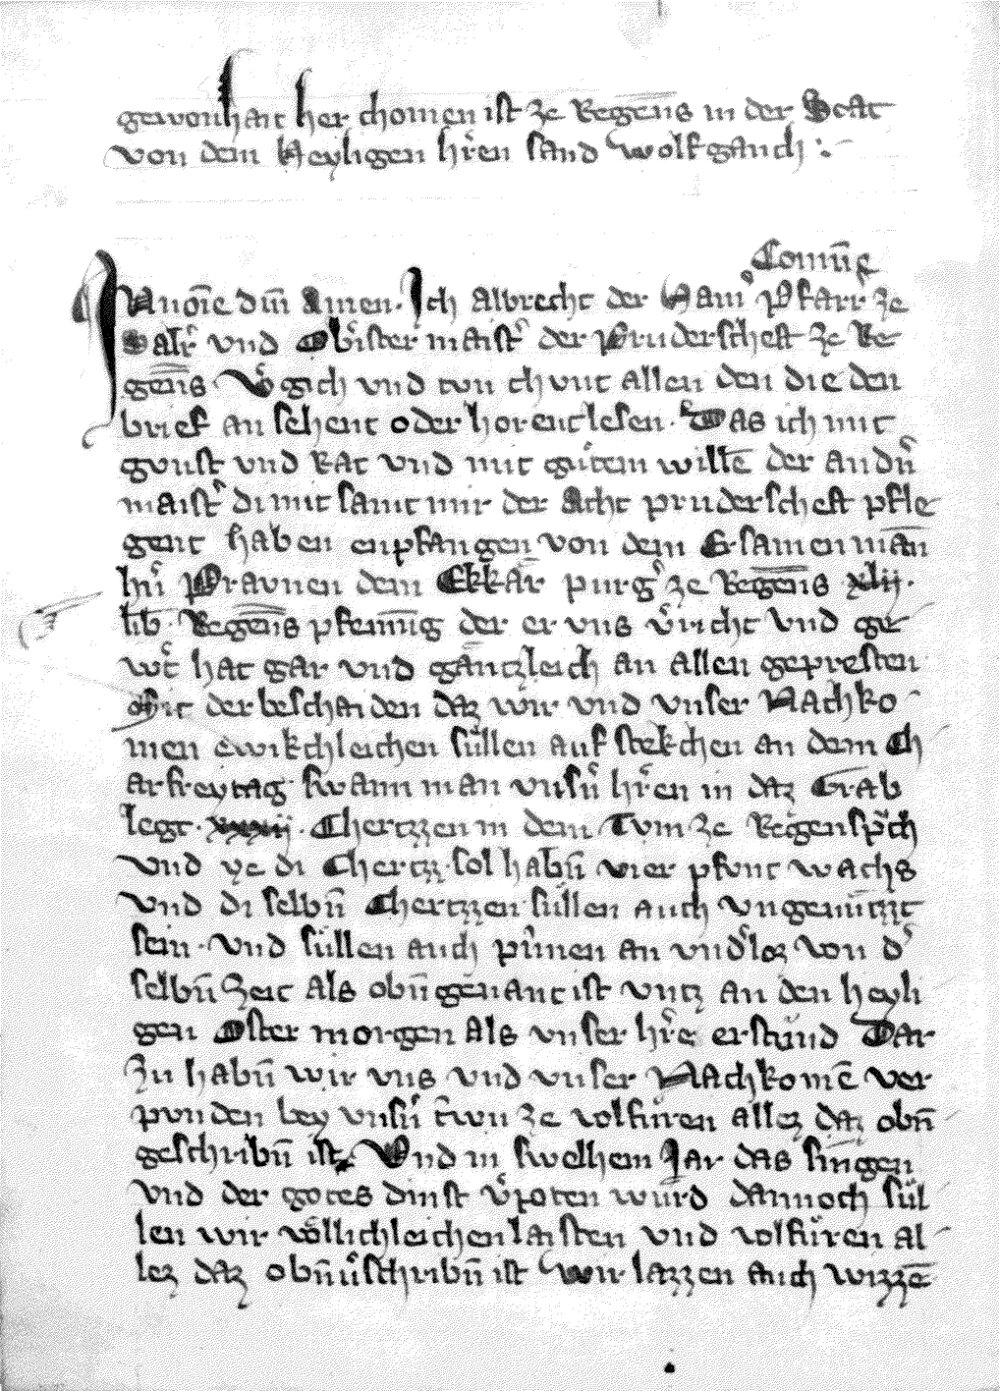 gewonhait her chomen ist ze Regēns in der Stat
von dem heyligen hr̄en sand wolfganch :
Comūe
In noīe dn̄i Amen. Ich Albrecht der pfarr̄ ze
Salr̄ vnd Obister maist̄ der Pruderscheft ze Re
gens Vͦgich vnd tvn chunt allen den die den
brief an sehent oder horent lesen. Daz ich mit
gunst vnd Rat vnd mit gůtem willē der andn̄
maist̄ di mit samt mir der Acht pruderscheft pfle
gent haben enpfangen von dem Ersamen mān
hn̄ Pravnen dem Ekkār purḡ ze Regēns xlij.
lib. Regēns pfenīng der er vns v̄richt vnd ge
wt̄ hat gar vnd gāntzleich an allen gepresten
Mit der beschaiden daz wir vnd vnser Nachko
men ewikchleichen sůllen auf stekchen an dem Ch
arfreytag swann man vnsn̄ hr̄en in daz Grab
legt. xxxij. Chertzzen in dem Tvm ze Regenspch̄
vnd ye di Chertz sol habn̄ vier pfunt wachs
vnd di selbn̄ Chertzzen sůllen auch vngenūtzzt
sein. vnd sullen auch prīnen an vnd̄loz von d̄
selbn̄ Zeit als obn̄genant ist vntz an den heyli
gen Oster morgen als vnser hr̄e erstůnd Dar
zu habn̄ wir vns vnd vnser Nachkomē ver
punden bey vnsn̄ tr̄wn ze volfůren allez daz obn̄
geschribn̄ ist. Vnd in swelhem Jar das singen
vnd der gotes dinst v̄poten wurd dannoch sůl
len wir vͦllichleichen laisten vnd volfůren al
lez daz obn̄ v̄schribn̄ ist wir lazzen auch wizzē